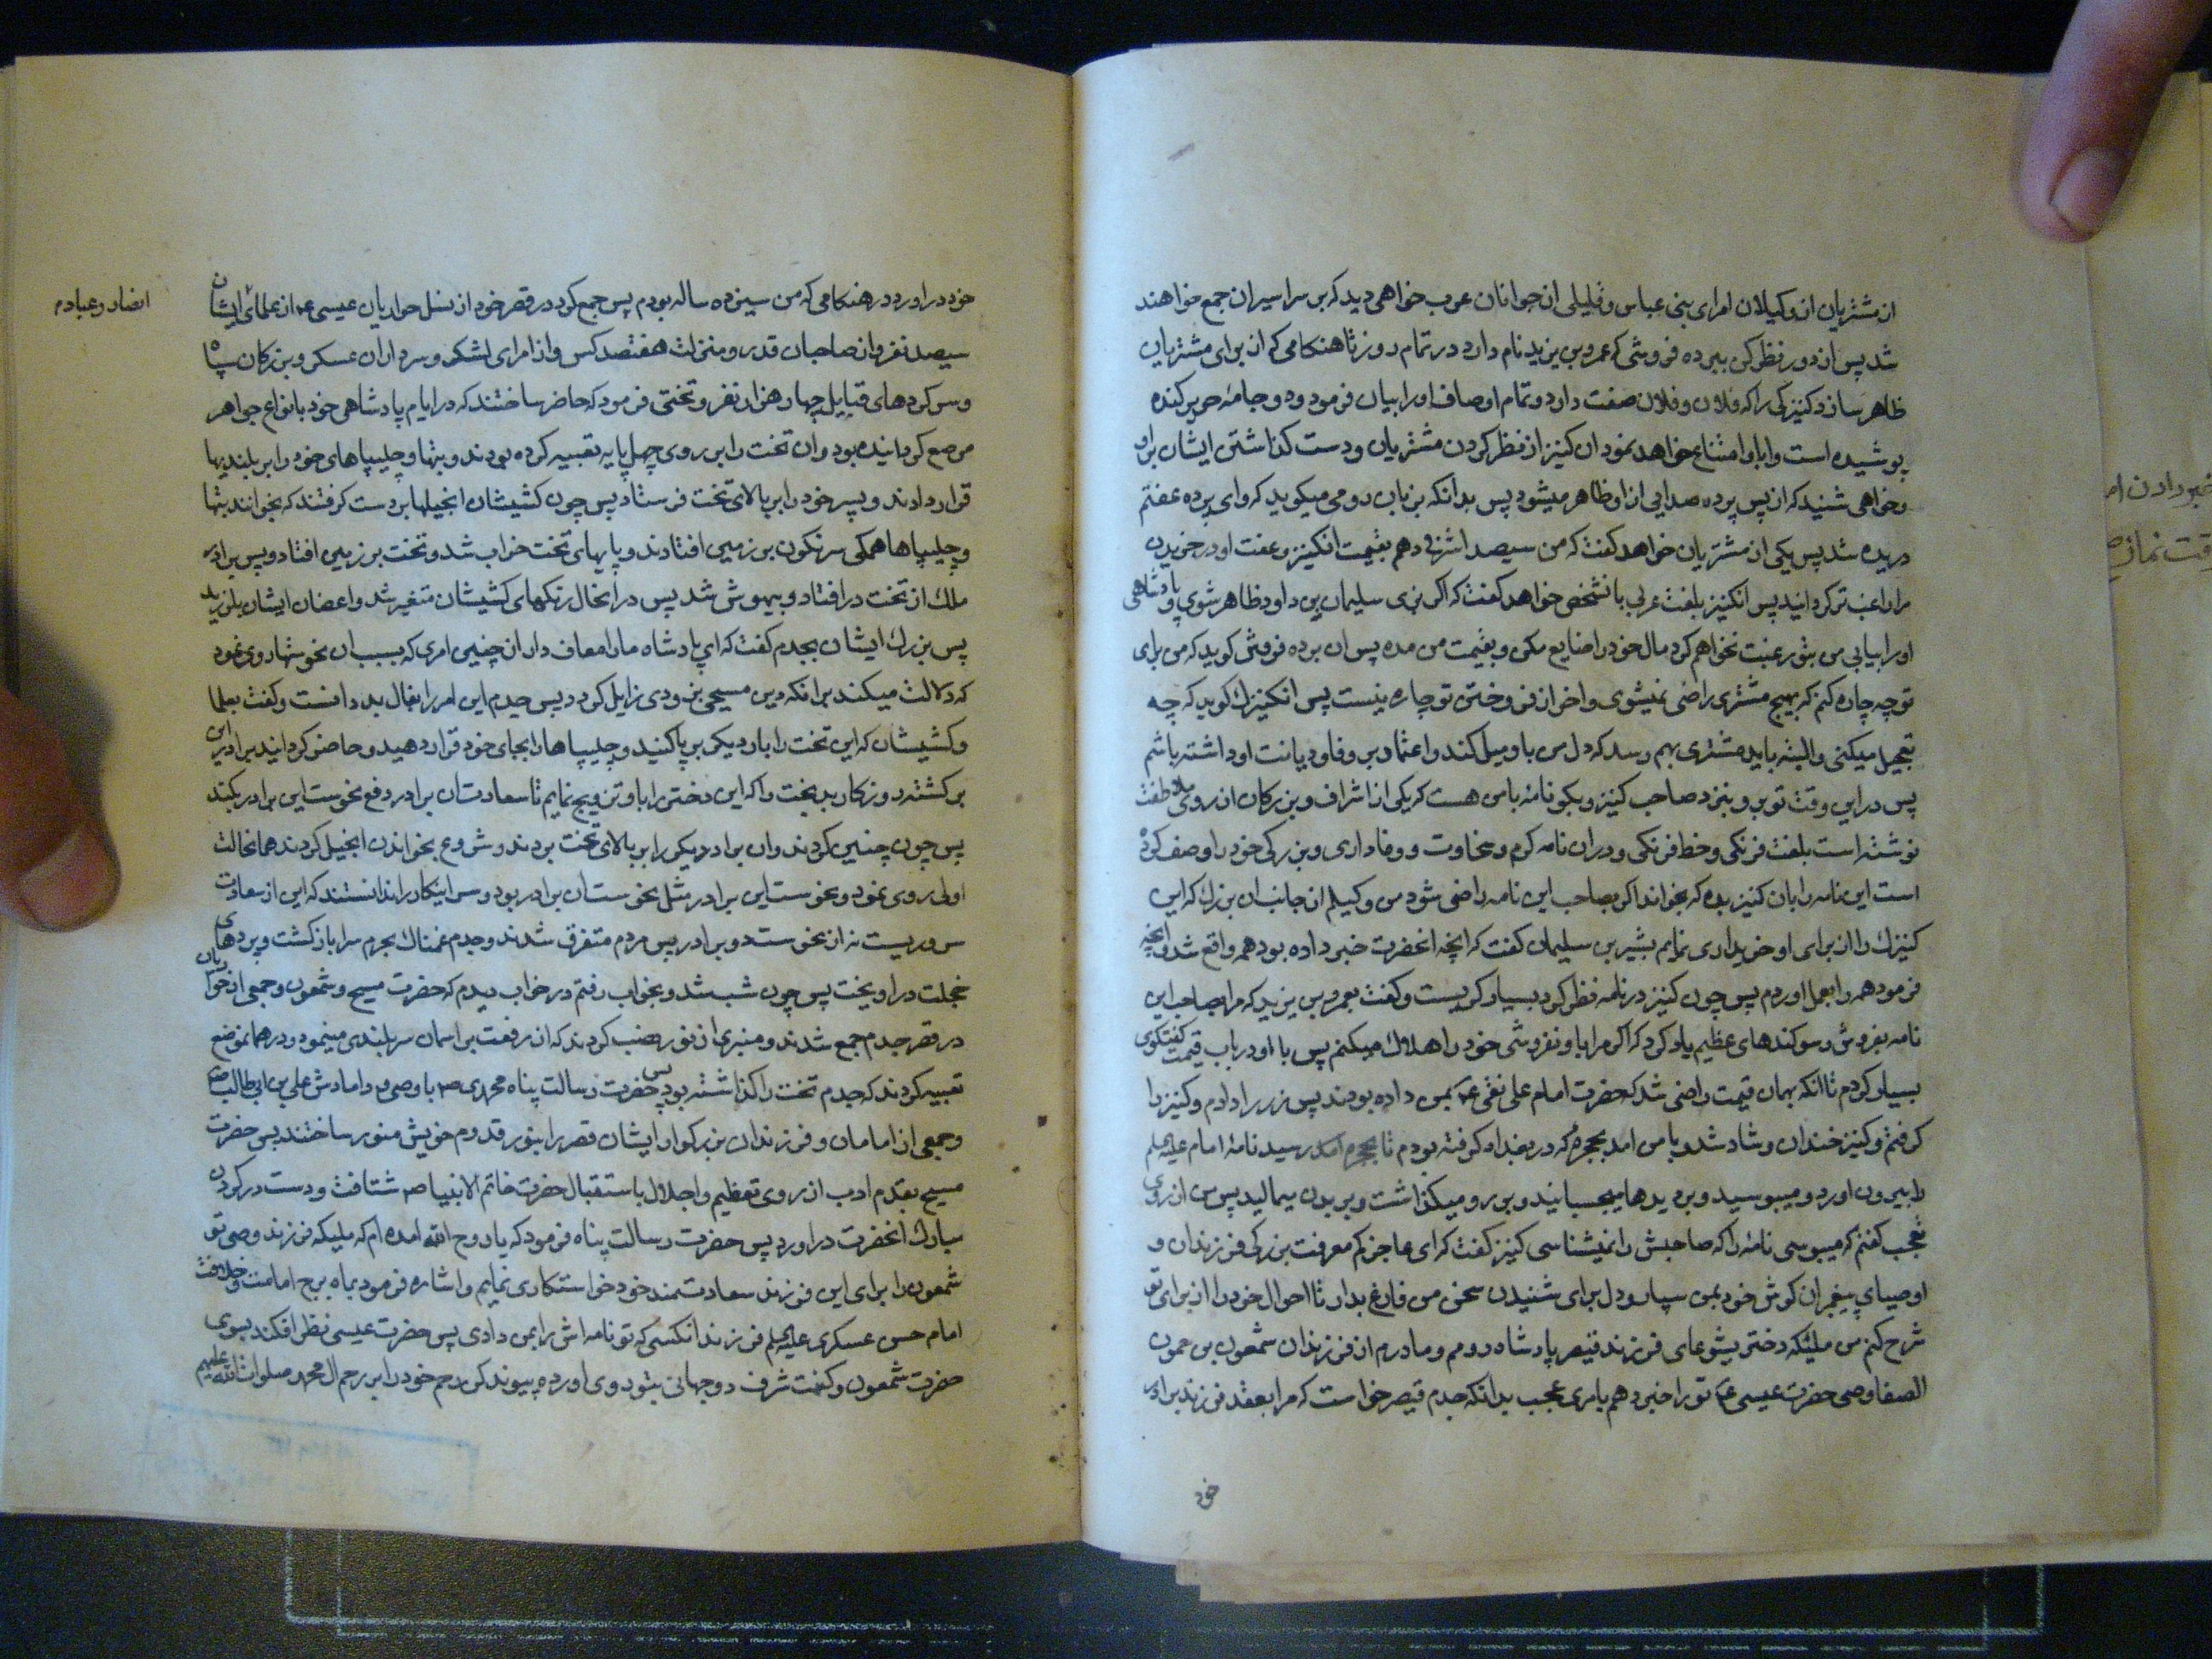 از مشتریان از وکیلان امرای بنی عباس و قلیلی از جوانان عرب خواهی دید که بر سر اسیران جمع خواهند
شد پس از دور نظر کن ببرده فروشی که عمرو بن یزید نام دارد در تمام روز تا هنکامی که از برای مشتریان
ظاهر سازد کنیزکی را که فلان و فلان صفت دارد و تمام اوصاف او را بیان فرمود و دو جامهٔ حریر کنده
پوشیده است و ابا و امتناع خواهد نمود ان کنیز از نظر کردن مشتریان و دست کذاشتن ایشان براو
و خواهی شنید که از پس پرده صدایی از او ظاهر میشود پس بدانکه بزبان رومی میکوید که وای پرده عفتم
دریده شد پس یکی از مشتریان خواهد کفت که من سیصد اشرفی دهم بقیمت انکنیز و عفت او در خریدن
مرا راغب تر کردانید پس انکنیز بلغت عربی بانشخص خواهد کفت که اکر بزی سلیمان بن داود ظاهر شوی و پادشاهی
او را بیابی من بتو رغبت نخواهم کرد مال خود را ضایع مکن و بقیمت من مده پس ان برده فروش کوید که من برای
تو چه چاره کنم که بهیچ مشتری راضی نمیشوی و اخر از فروختن تو چاره نیست پس انکنیزک کوید که چه
تعجیل میکنی و البته باید مشتری بهم رسد که دل من باو میل کند و اعتماد بر وفا و دیانت او داشته باشم
پس در این وقت تو برو بنزد صاحب کنیز و بکو نامهٔ با من هست که یکی از اشراف و بزرکان از روی ملاطفت
نوشته است بلغت فرنکی و خط فرنکی و در ان نامه کرم و سخاوت و وفاداری و بزرکی خود را وصف کرده
است این نامه را بان کنیز بده که بخواند اکر بصاحب این نامه راضی شود من وکیلم از جانب ان بزرک که این
کنیزک را از برای او خریداری نمایم بشیر بن سلیمان کفت که انچه انحضرت خبر داده بود همه واقع شد و انچه
فرمود همه را بعمل اوردم پس چون کنیز در نامه نظر کرد بسیار کریست و کفت بعمرو بن یزید که مرا بصاحب این
نامه بفروش و سوکندهای عظیم یاد کرد که اکر مرا باو نفروشی خود را هلاک میکنم پس با او در باب قیمت کفتکوی
بسیار کردم تا انکه بهمان قیمت راضی شد که حضرت امام علی نقی ع بمن داده بودند پس زر را دادم و کنیز را
کرفتم و کنیز خندان و شاد شد و با من امد بحجره که در بغداد کرفته بودم تا بحجره امد رسید نامهٔ امام علیه السلام
را بیرون اورد و میبوسید و بر دیدها میچسبانید و بر رو میکذاشت و بر بدن میمالید پس من از روی
تعجب کفتم که میبوسی نامهٔ را که صاحبش را نمیشناسی کنیز کفت که ای عاجز کم معرفت بزرکی فرزندان و
اوصیای پیغمبران کوش خود بمن سپار و دل برای شنیدن سخن من فارغ بدار تا احوال خود را از برای تو
شرح کنم من ملیکه دختر یشوعای فرزند قیصر پادشاه رومم و مادرم از فرزندان شمعون بن حمون
الصفا وصی حضرت عیسی ع تو را خبر دهم بامری عجب بدانکه جدم قیصر خواست که مرا بعقد فرزند برادر
خود
خود در اورد در هنکامی که من سیزده ساله بودم پس جمع کرد در قصر خود از نسل حواریان عیسی ع از علمای ایشان
سیصد نفر و از صاحبان قدر و منزلت هفتصد کس و از امرای لشکر و سرداران عسکر و بزرکان سپاه
و سرکردهای قبایل چهار هزار نفر و تختی فرمود که حاضر ساختند که در ایام پادشاهی خود بانواع جواهر
مرصع کردانیده بود و ان تخت را بر روی چهل پایه تعبیه کرده بودند و بتها و چلیپاهای خود را بر بلندیها
قرار دادند و پسر خود را بر بالای تخت فرستاد پس چون کشیشان انجیلها بر دست کرفتند که بخوانند بتها
و چلیپاها همکی سرنکون بر زمین افتادند و پایهای تخت خراب شد و تخت بر زمین افتاد و پس برادر
ملک از تخت در افتاد و بیهوش شد پس در انحال رنکهای کشیشان متغیر شد و اعضای ایشان بلرزید
پس بزرک ایشان بجدم کفت که ای پادشاه ما را معاف دار از چنین امری که بسبب ان نحوستها روی نمود
که دلالت میکند برانکه دین مسیحی بزودی زایل کردد پس جدم این امر را بفال بد دانست و کفت بعلما
و کشیشان که این تخت را بار دیکر برپا کنید و چلیپاها را بجای خود قرار دهید و حاضر کردانید برادر این
برکشته روزکار بدبخت را که این دختر را باو تزویج نمایم تا سعادت ان برادر دفع نحوست این برادر بکند
پس چون چنین کردند و ان برادر دیکر را بر بالای تخت بردند و شروع بخواندن انجیل کردند همانحالت
اولی روی نمود و نحوست این برادر مثل نحوست ان برادر بود و سر اینکار را ندانستند که این از سعادت
سروریست نه از نحوست دو برادر پس مردم متفرق شدند و جدم غمناک بحرم سرا بازکشت و پردهای
خجلت در اویخت پس چون شب شد و بخواب رفتم در خواب دیدم که حضرت مسیح و شمعون و جمعی از حواریان
در قصر جدم جمع شدند و منبری از نور نصب کردند که از رفعت بر اسمان سر بلندی مینمود و در همانموضع
تعبیه کردند که جدم تخت را کذاشته بود پس حضرت رسالت پناه محمدی ص با وصی و دامادش علی بن ابی طالب ع
و جمعی از امامان و فرزندان بزرکوار ایشان قصر را بنور قدوم خویش منور ساختند پس حضرت
مسیح بقدم ادب از روی تعظیم و اجلال باستقبال حضرت خاتم الانبیا ص شتافت و دست در کردن
مبارک انحضرت در اورد پس حضرت رسالت پناه فرمود که یا روح الله امده ام که ملیکه فرزند وصی تو
شمعون را برای این فرزند سعادتمند خود خواستکاری نمایم و اشاره فرمود بماه برج امامت و خلافت
امام حسن عسکری علیه السلام فرزند انکسی که تو نامه اش را بمن دادی پس حضرت عیسی نظر افکند بسوی
حضرت شمعون و کفت شرف دو جهانی بتو روی اورده پیوند کن رحم خود را برحم ال محمد صلوات الله علیهم